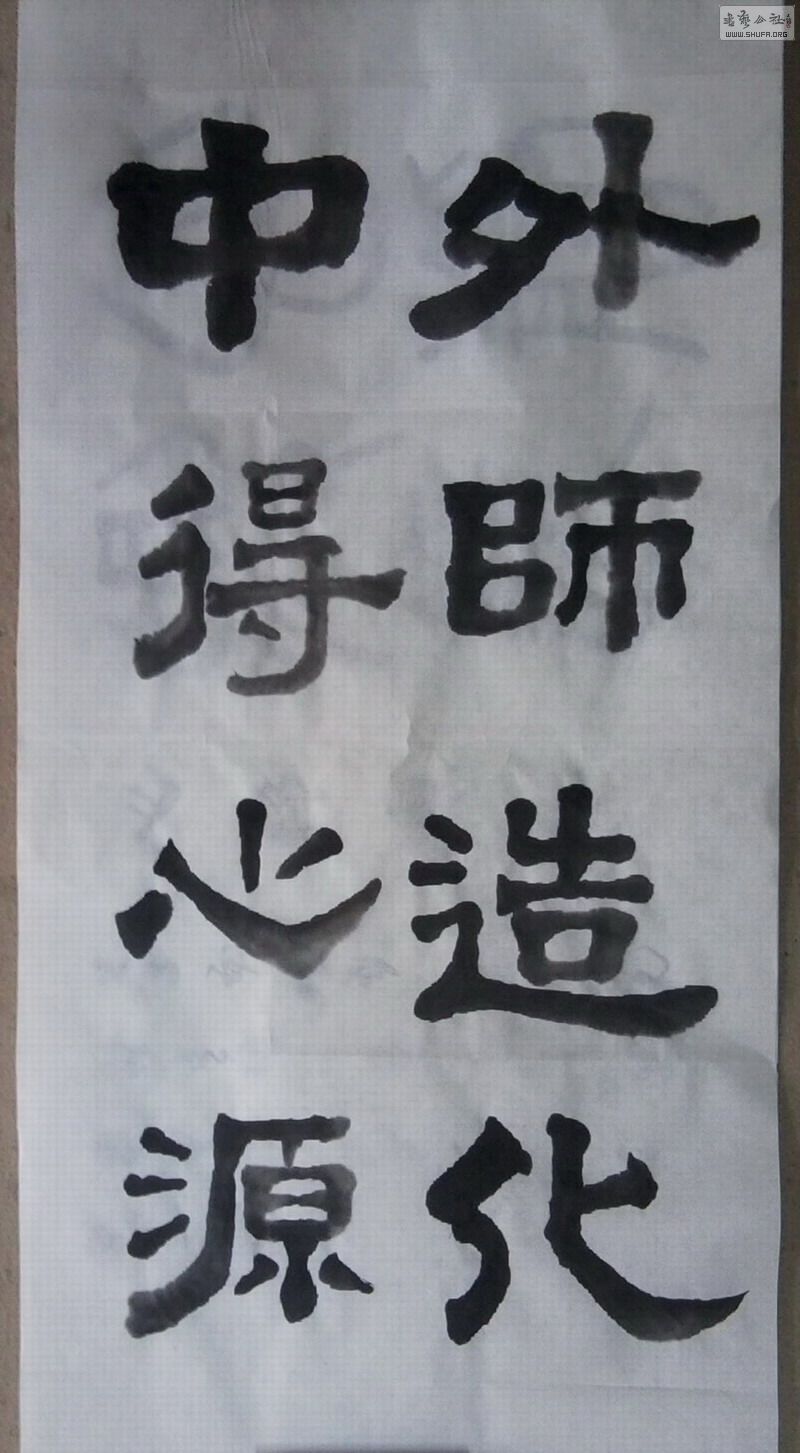 外師造化
中得心源
WWW.SHUFA.ORG